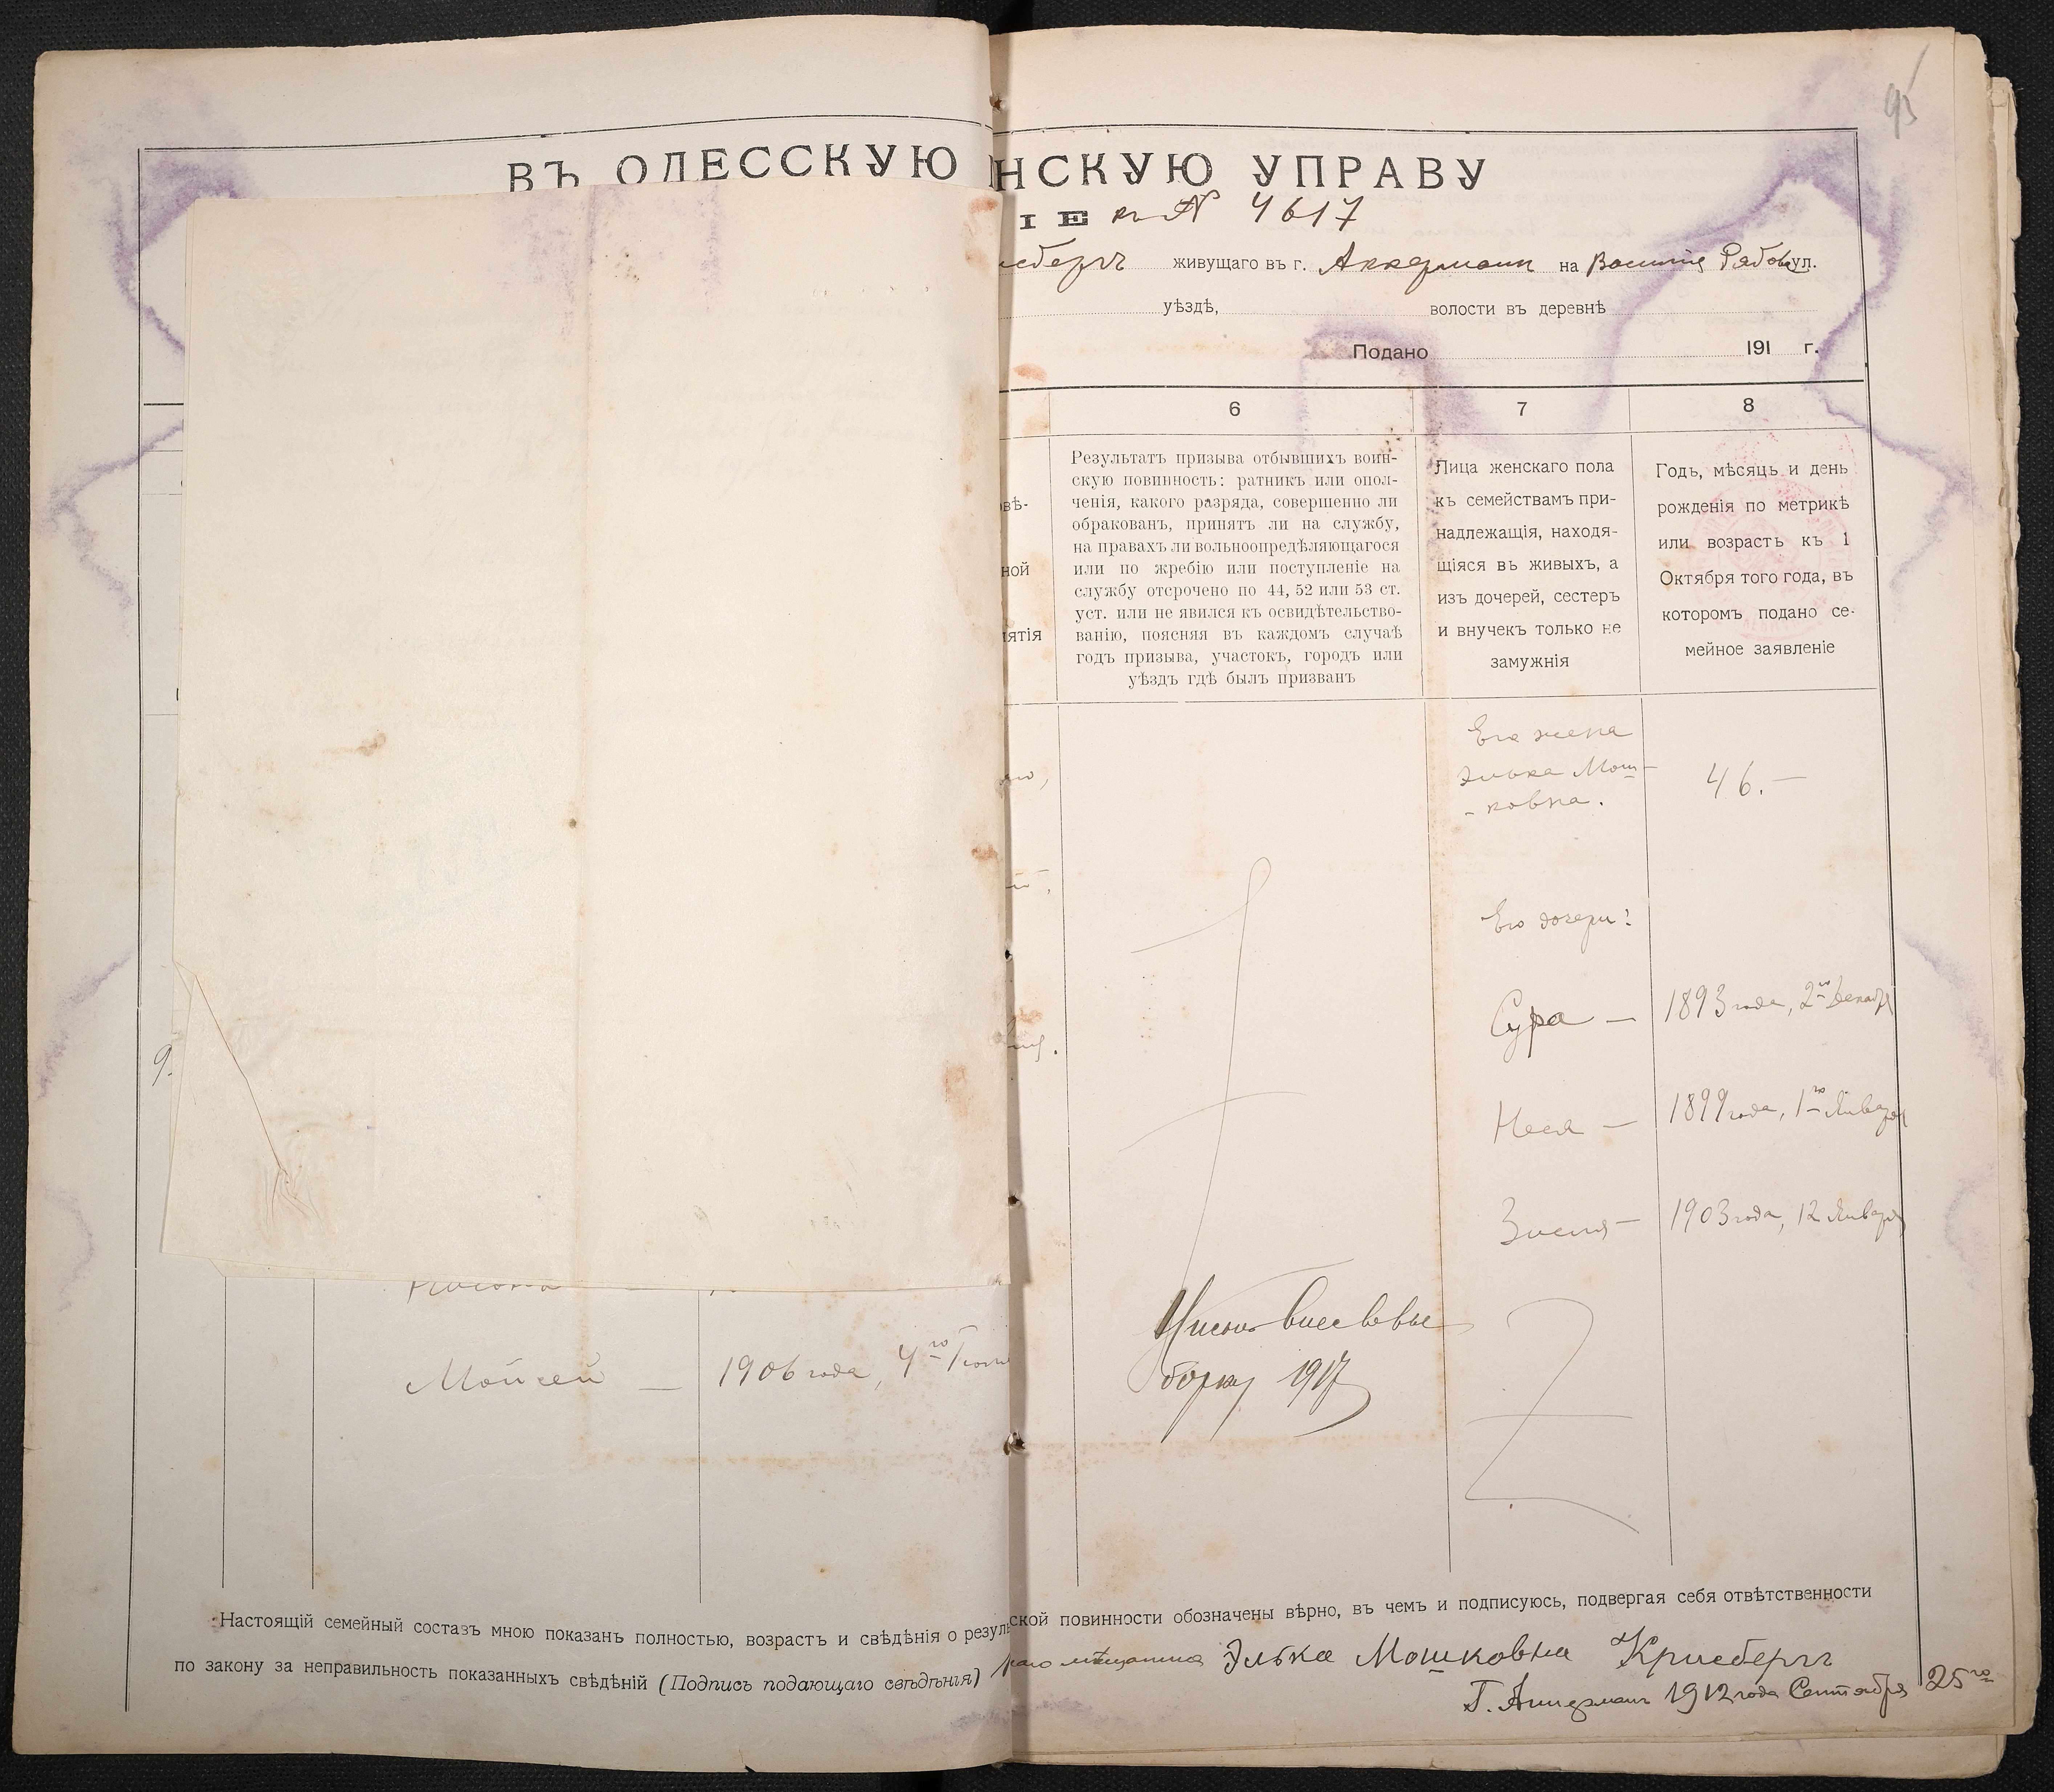 95
ВЪ ОДЕССКУЮ НСКУЮ УПРАВУ
ІЕ къ № 4617
сбергъ живущаго въ г. Аккерманъ на ул.
уѣздѣ, волости въ деревнѣ
Подано 191 г.
6 7 8
Результатъ призыва отбывшихъ воин-
скую повинность: ратникъ или опол-
ченія, какого разряда, совершенно ли
обракованъ, принятъ ли на службу,
на правахъ ли вольноопредѣляющагося
или по жребію или поступленіе на
службу отсрочено по 44, 52 или 53 ст.
уст. или не явился къ освидѣтельство-
ванію, поясняя въ каждомъ случаѣ
годъ призыва, участокъ, городъ или
уѣздъ гдѣ былъ призванъ
Лица женскаго пола
къ семействамъ при-
надлежащія, находя-
щіяся въ живыхъ, а
изъ дочерей, сестеръ
и внучекъ только не
замужнія
Годъ, мѣсяцъ и день
рожденія по метрикѣ
или возрастъ къ 1
Октября того года, въ
которомъ подано се-
мейное заявленіе
вѣ-
ной
ятія
Его жена
Элька Мош-
-ковна. 46. —
Его дочери:
Сура — 1893 года, 2го Декабр
9.
Неся — 1899 года, 1го Января
Зисля — 1903 года, 12 Января
Мойсей — 1906 года, 4го
1917
Настоящій семейный составъ мною показанъ полностью, возрастъ и свѣдѣнія о резуль ской повинности обозначены вѣрно, въ чемъ и подписуюсь, подвергая себя отвѣтственности
по закону за неправильность показанныхъ свѣдѣній (Подпись подающаго свѣдѣнія) Элька Мошковна Крисбергъ
Г. Аккерманъ 1912 года Сентября 25го